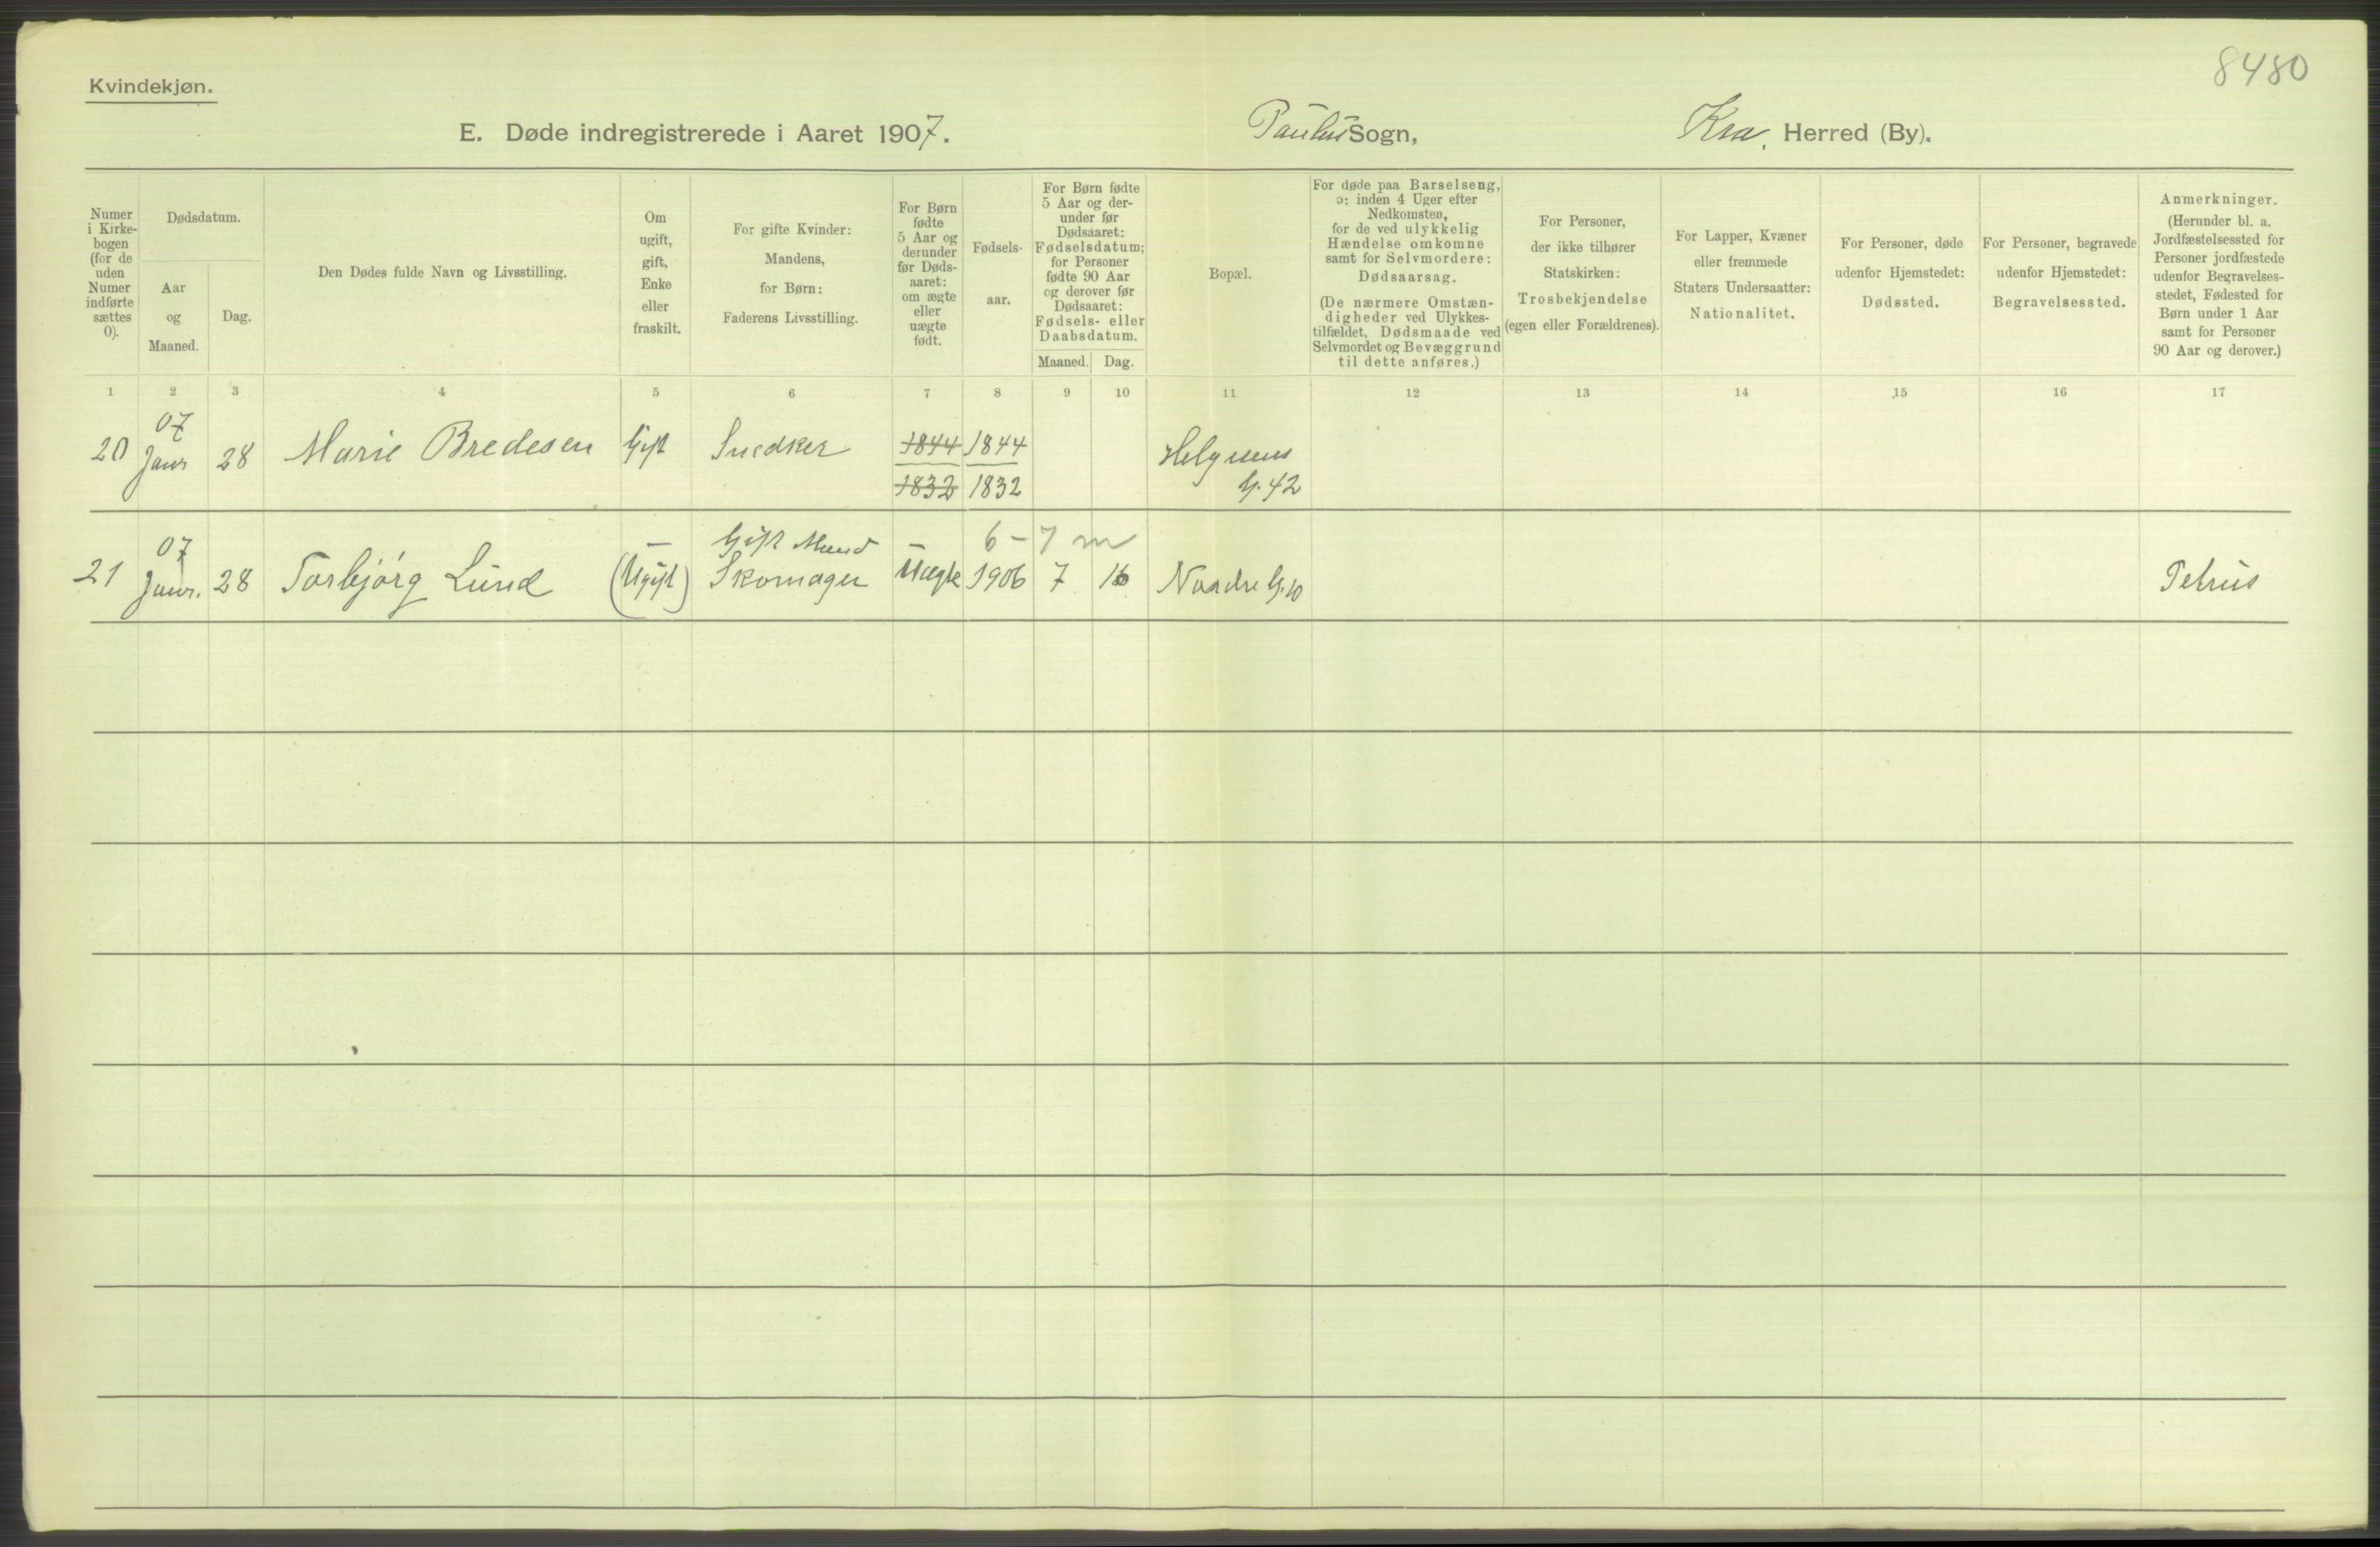 8480
Kvindekjøn.
E. Døde indregistrerede i Aaret 1907. Paulus Sogn, Kra. Herred (By).
Numer
i Kirke-
bogen
(for de
uden
Numer
indførte
sættes
0).
Dødsdatum.
Aar
og
Maaned.
Dag.
Den Dødes fulde Navn og Livsstilling.
Om
ugift,
gift,
Enke
eller
fraskilt.
For gifte Kvinder:
Mandens,
for Børn:
Faderens Livsstilling.
For Børn
fødte
5 Aar og
derunder
før Døds-
aaret:
om ægte
eller
uægte
født.
Fødsels-
aar.
For Børn fødte
5 Aar og der-
under før
Dødsaaret:
Fødselsdatum;
for Personer
fødte 90 Aar
og derover før
Dødsaaret:
Fødsels- eller
Daabsdatum.
Maaned. Dag.
Bopæl.
For døde paa Barselseng,
ɔ: inden 4 Uger efter
Nedkomsten,
for de ved ulykkelig
Hændelse omkomne
samt for Selvmordere:
Dødsaarsag.
(De nærmere Omstæn-
digheder ved Ulykkes-
tilfældet, Dødsmaade ved
Selvmordet og Bevæggrund
til dette anføres.)
For Personer,
der ikke tilhører
Statskirken:
Trosbekjendelse
(egen eller Forældrenes).
For Lapper, Kvæner
eller fremmede
Staters Undersaatter:
Nationalitet.
For Personer, døde
udenfor Hjemstedet:
Dødssted.
For Personer, begravede
udenfor Hjemstedet:
Begravelsessted.
Anmerkninger.
(Herunder bl. a.
Jordfæstelsessted for
Personer jordfæstede
udenfor Begravelses-
stedet, Fødested for
Børn under 1 Aar
samt for Personer
90 Aar og derover.)
1 2 3 4 5 6 7 8 9 10 11 12 13 14 15 16 17
07
20 Janr 28 Marie Bredesen Gift Snedker 1844 1844 Helgesens
1832 1832 G. 42
07 — Gift Mand — 6 - 7 m
21 Janr. 28 Torbjørg Lund (Ugift) Skomager Uægte 1906 7 16 Nordre G. 10 Petrus